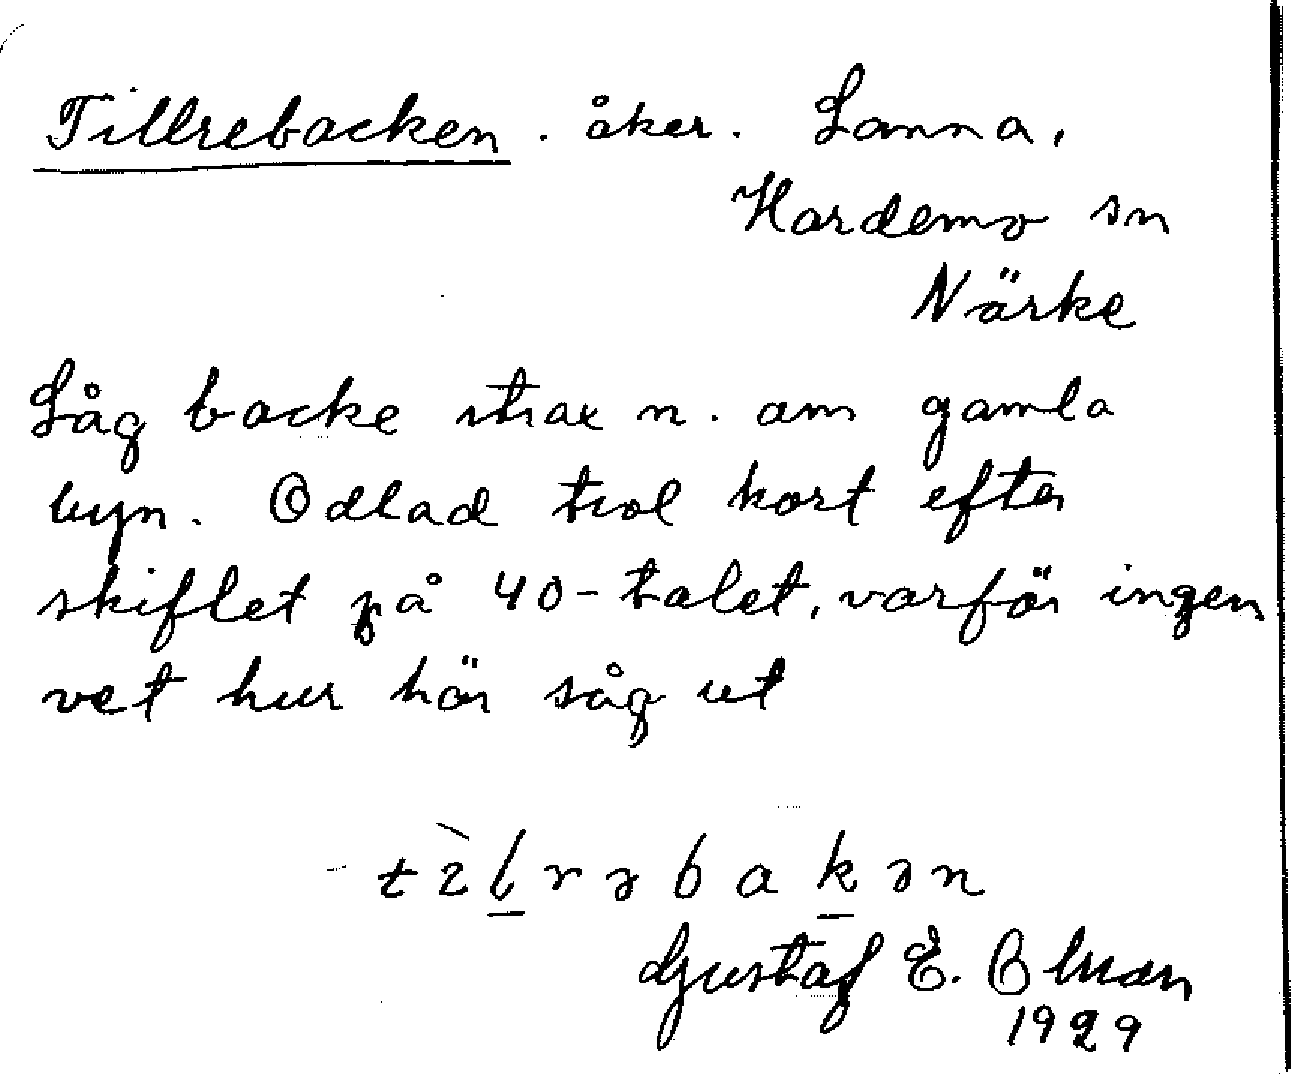 Tillrebacken. åker. Lanna,
Hardemo sn
Närke
Låg backe strax n. om gamla
byn. Odlad trol kort efter
skiflet på 40-talet, varför ingen
vet hur här såg ut
Gustaf E.
1929